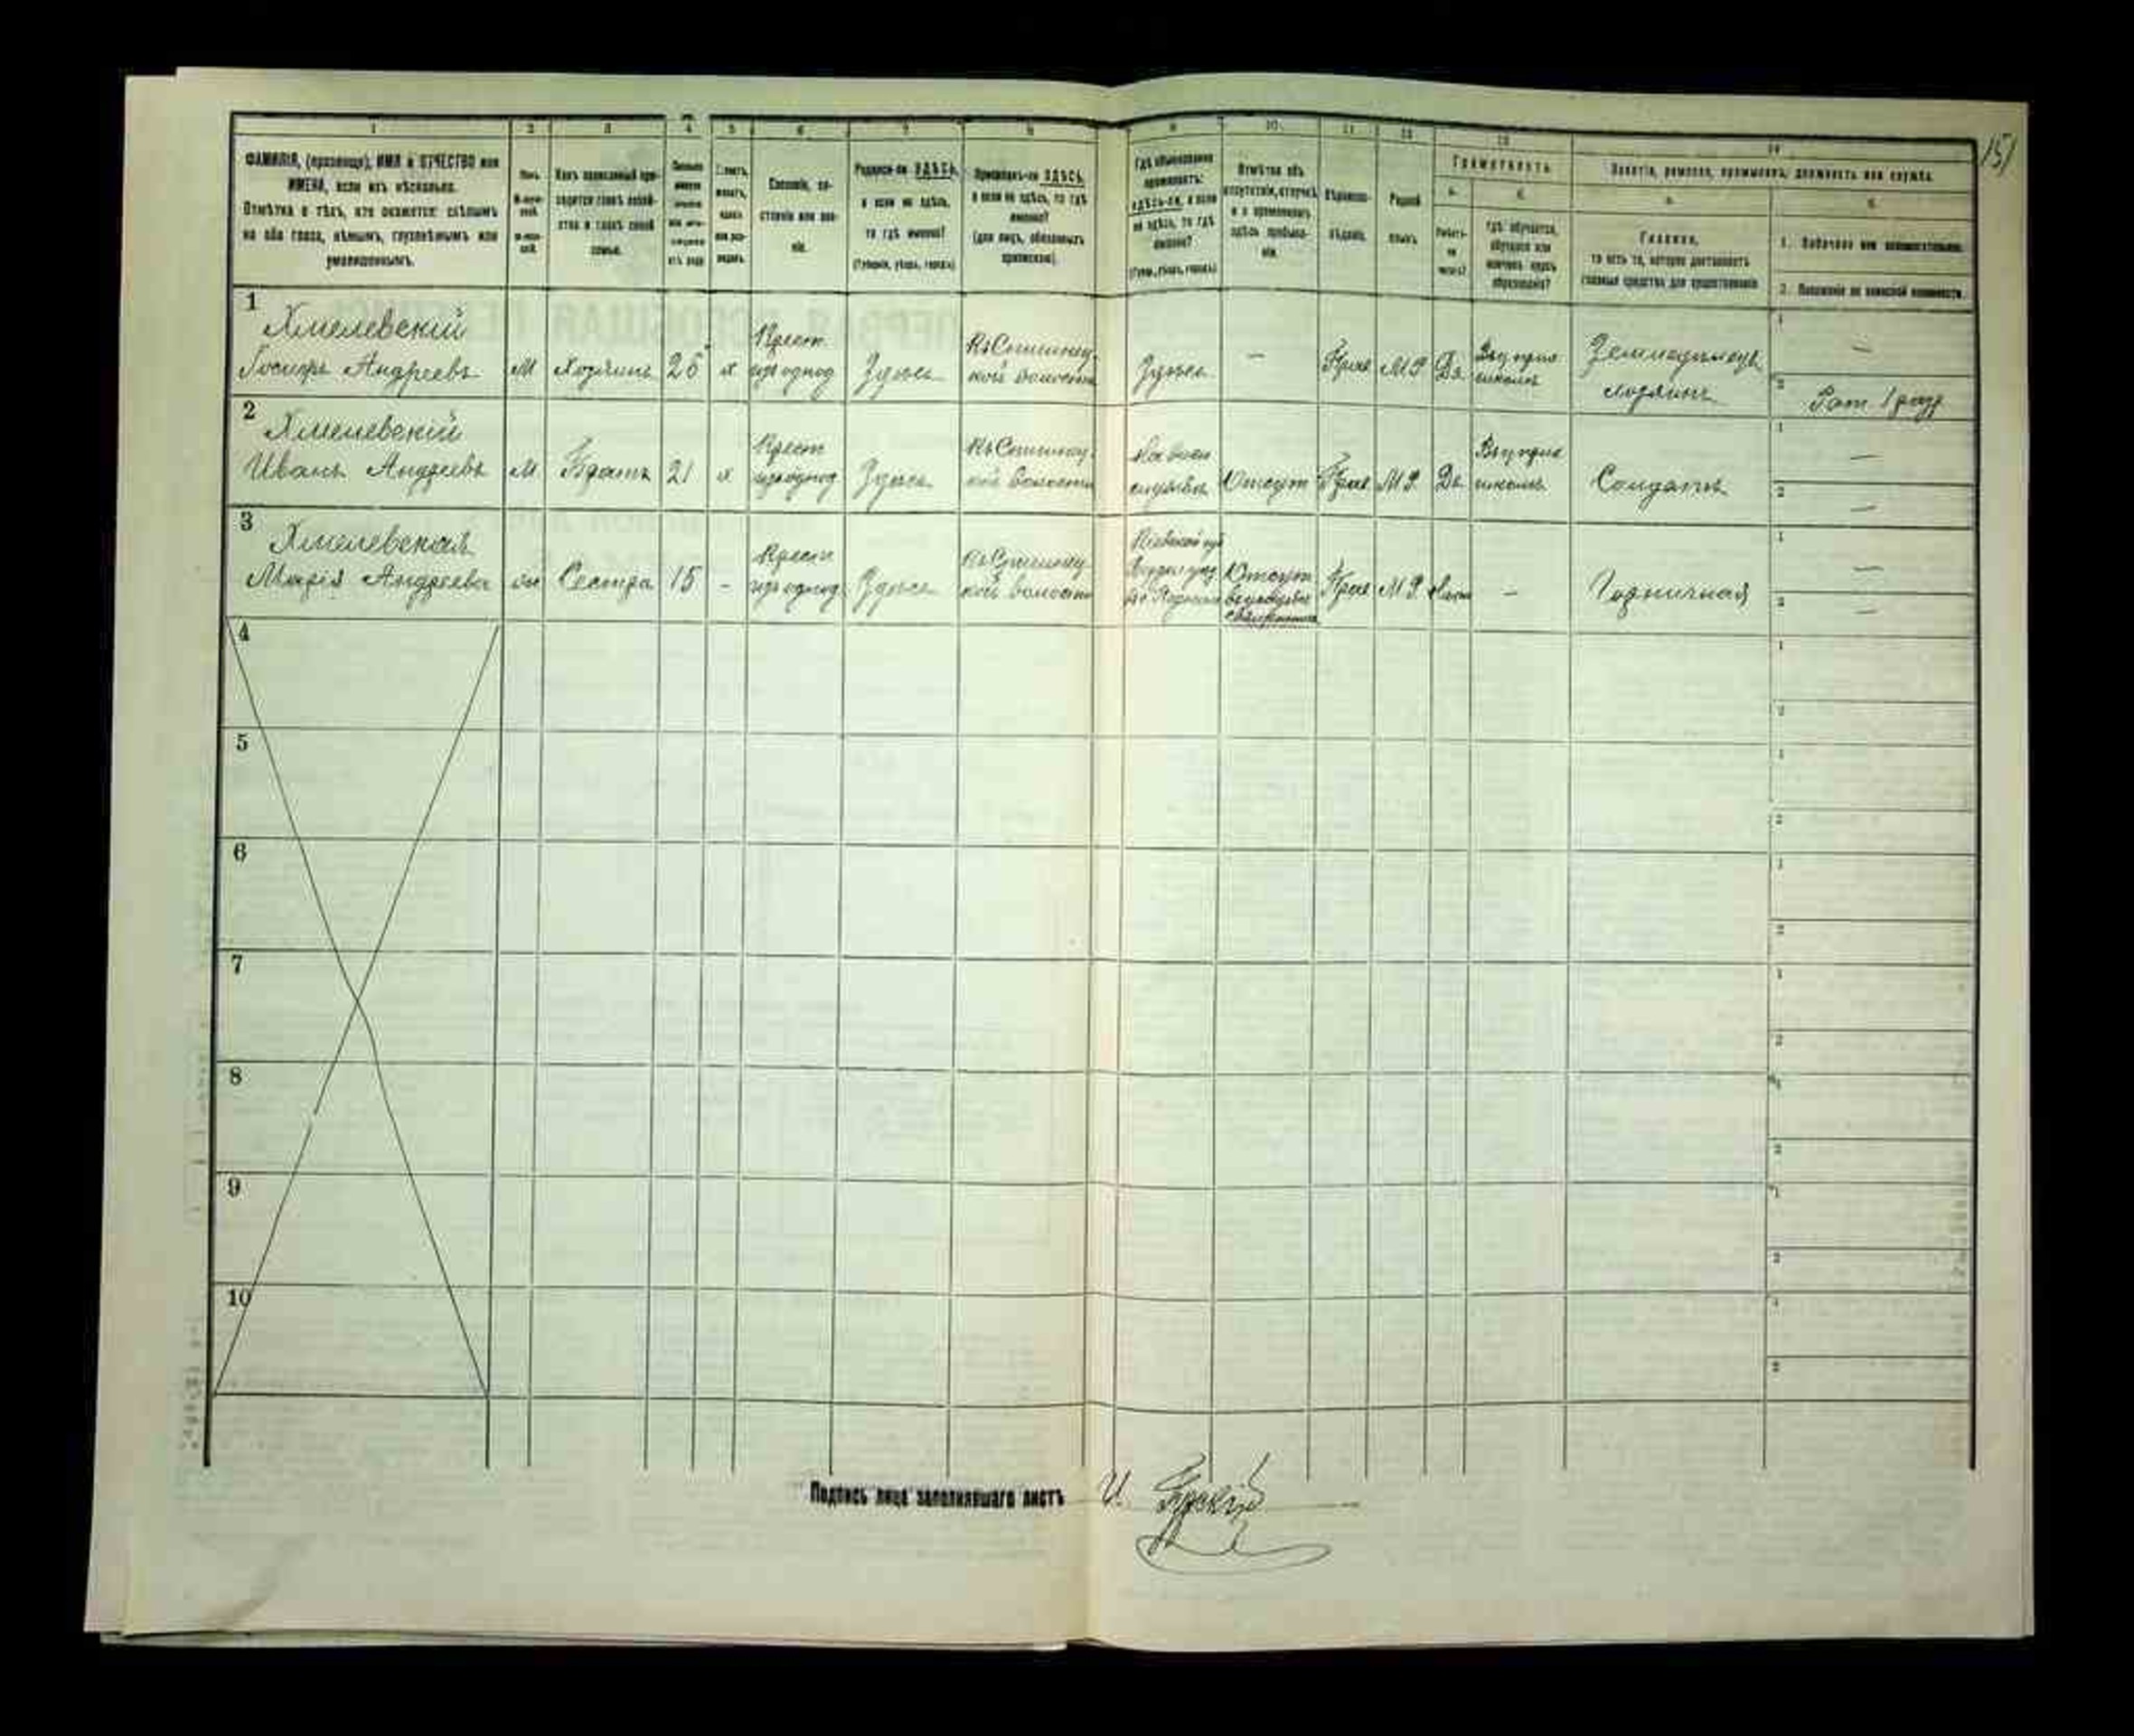 1 2 3 4 5 6 7 8 9 10 11 12 13 14
151
ФАМИЛІЯ, (прозвище), ИМЯ и ОТЧЕСТВО или
ИМЕНА, если ихъ нѣсколько.
Отмѣтка о тѣхъ, кто окажется: слѣпымъ
на оба глаза, нѣмымъ, глухонѣмымъ или
умалишеннымъ.
Полъ.
Какъ записанный при-
ходится главѣ хозяй-
ства и главѣ своей
семьи.
Сословіе, со-
стояніе или зва-
ніе.
Родился-ли ЗДѢСЬ,
а если не здѣсь,
то гдѣ именно?
(Губернія, уѣздъ, городъ)
Приписанъ-ли ЗДѢСЬ,
а если не здѣсь, то гдѣ
именно?
(для лицъ, обязанныхъ
припискою).
Гдѣ обыкновенно
проживаетъ:
здѣсь-ли, а если
не здѣсь, то гдѣ
именно?
(Губер., уѣздъ, городъ)
Отмѣтка объ
отсутствіи, отлучкѣ
и о временномъ
здѣсь пребыва-
ніи.
Вѣроиспо-
вѣданіе.
Родной
языкъ.
Грамотность.
а.
б.
Умѣетъ-
ли
читать?
гдѣ обучается,
обучался или
кончилъ курсъ
образованія?
Занятіе, ремесло, промыселъ, должность или служба.
а.
Главное,
то есть то, которое доставляетъ
главныя средства для существованія
б.
1. Побочное или вспомогательное.
2. Положеніе по воинской повинности.
1
Хмелевскій
Іосифъ Андреевъ
М
Хозяинъ
26
х
Крест
изъ однод
Здѣсь
Здѣсь
—
Прав
М Р
Да
школѣ
Земледѣлецъ
хозяинъ
1
—
2
Рат 1 разр
2
Хмелевскій
Иванъ Андреевъ
М
Братъ
21
х
Крест
изъ однод
Здѣсь
На воен
службѣ
Отсут
Прав
М Р
Да
школѣ
Солдатъ
1
—
2
—
3
Хмелевская
Марія Андреева
ж
Сестра
15
-
Крест
изъ однод
Здѣсь
Кіевской губ
Отсут
Прав
М Р
—
Горничная
1
—
2
—
4
5
6
7
8
9
10
Подпись лица заполнявшаго листъ И.